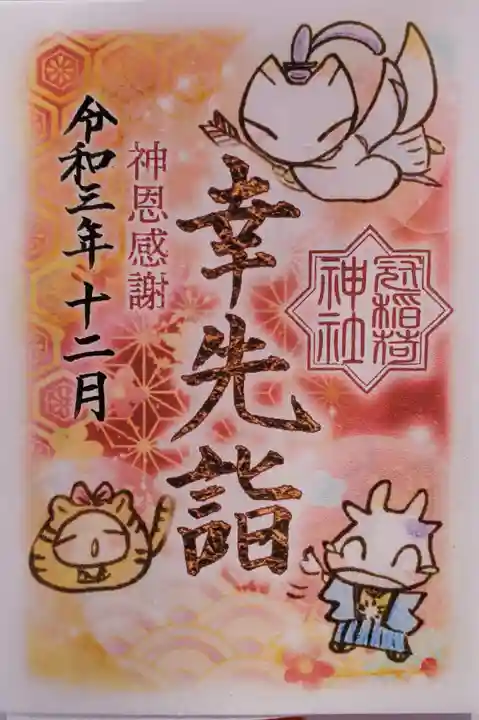 幸先詣
冠稲荷
神社
神恩感謝
令和三年十二月